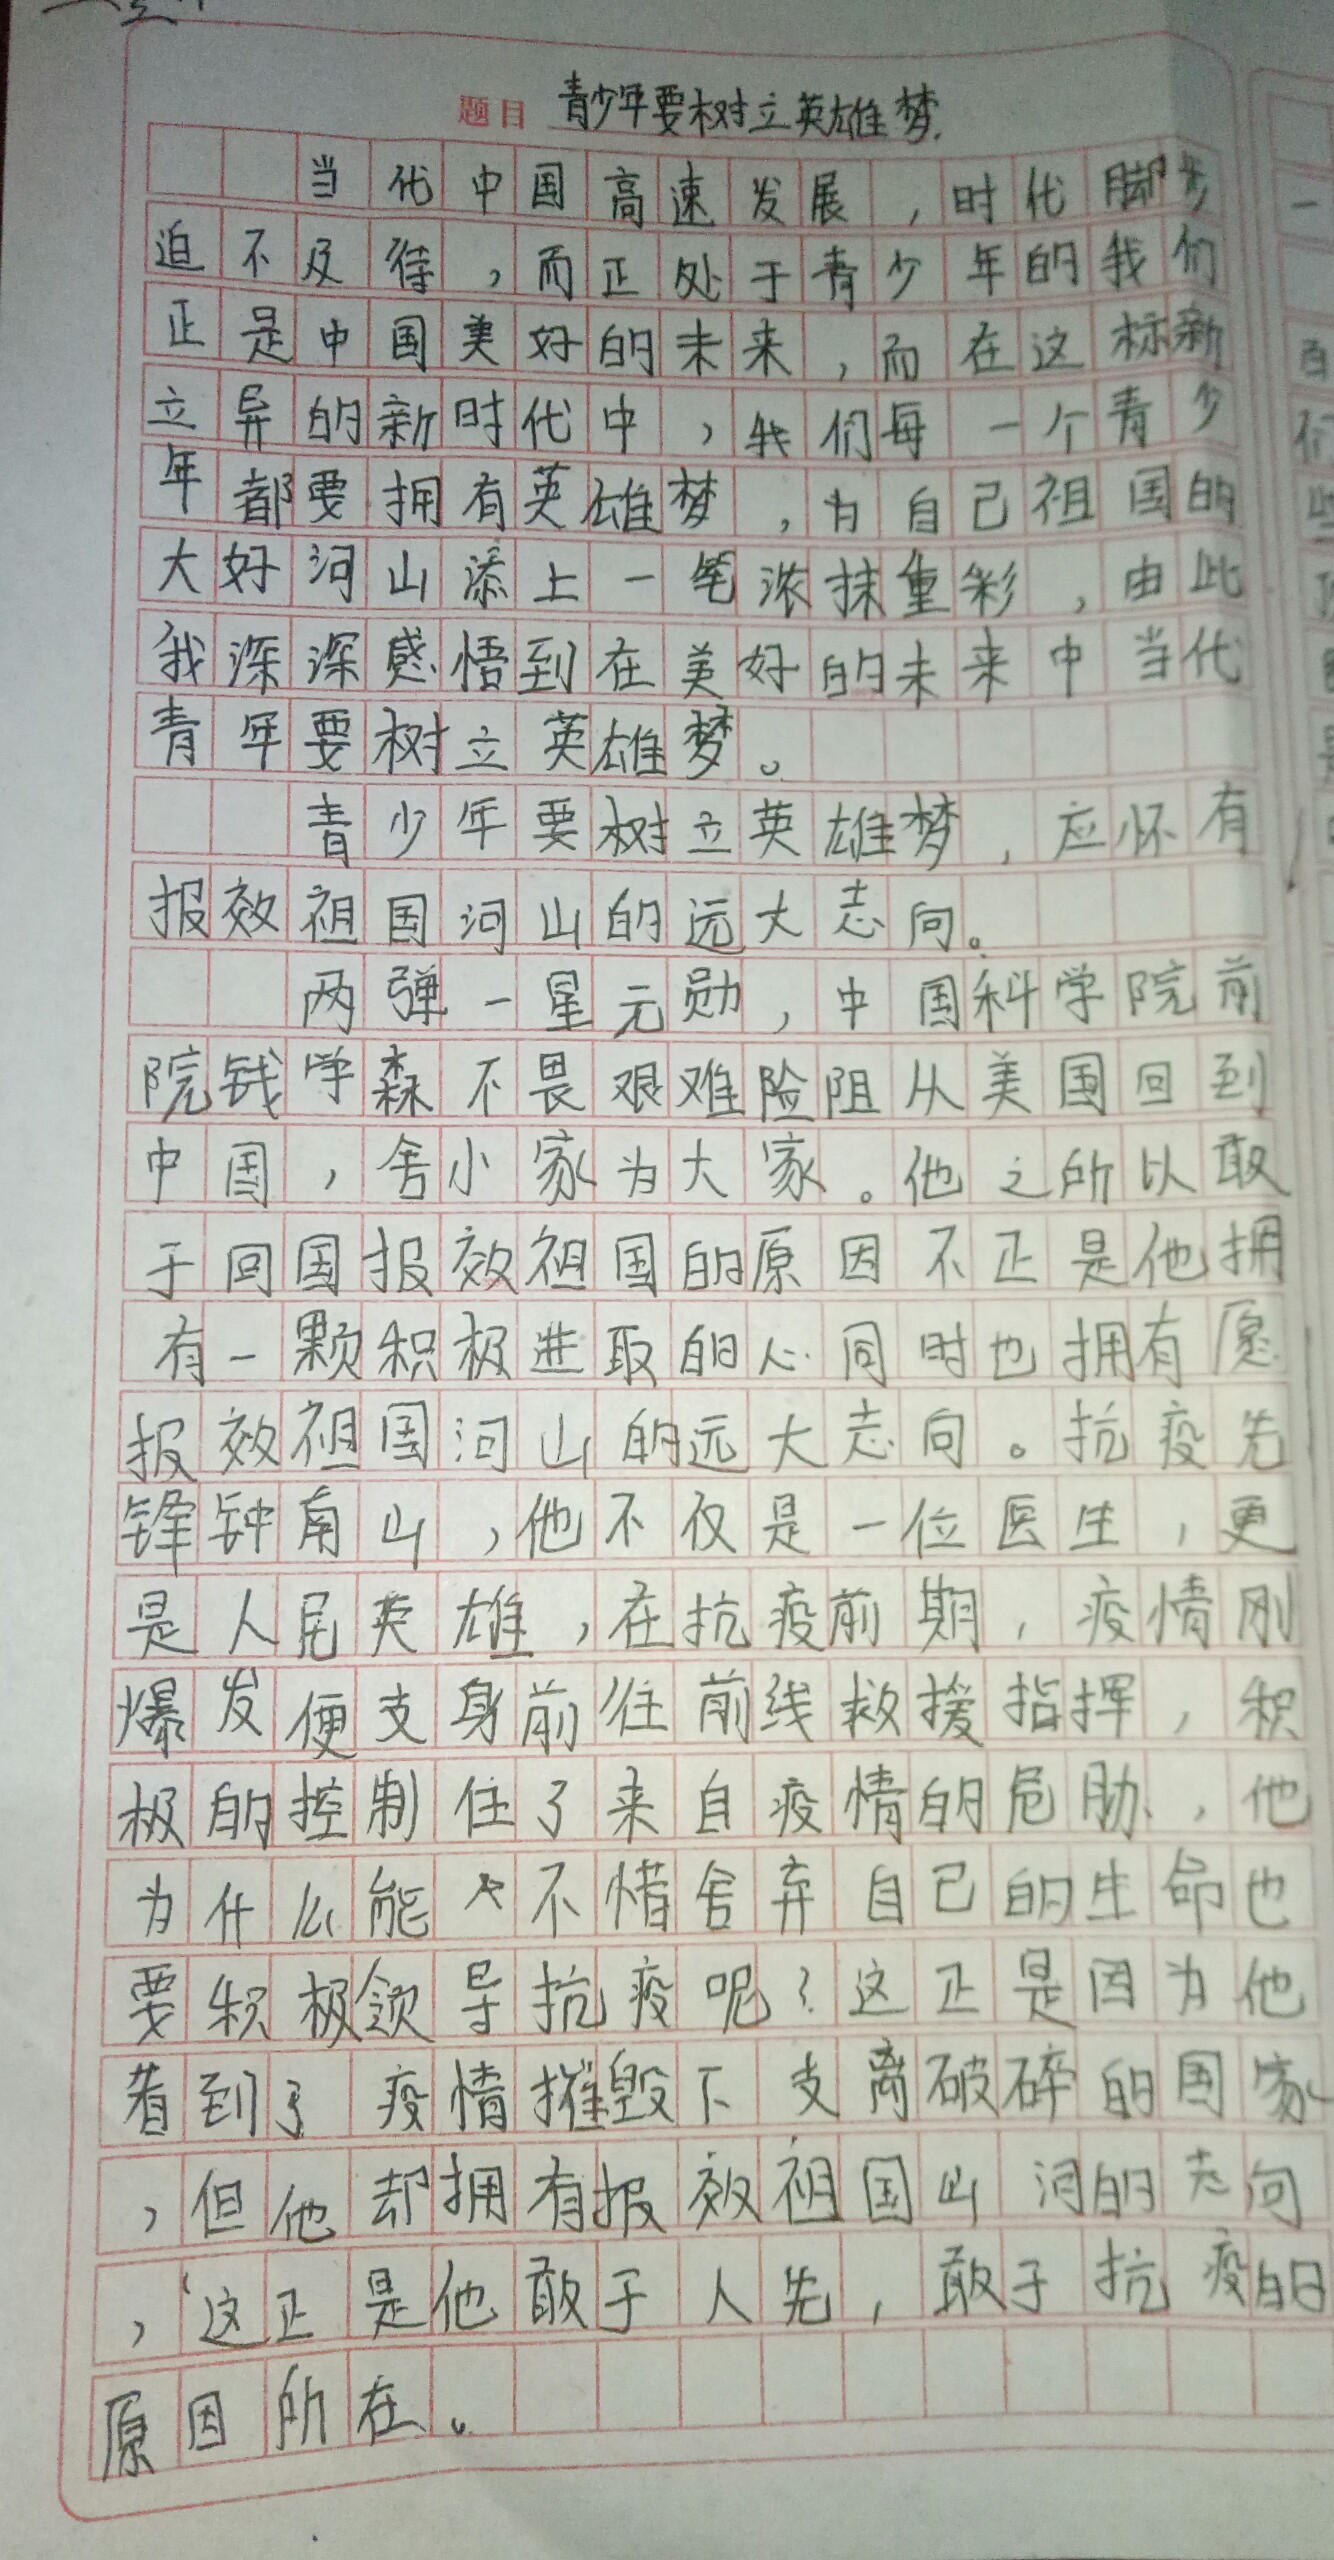 题目 青少年要树立英雄梦.
当代中国高速发展，时代脚步
迫不及待，而正处于青少年的我们
正是中国美好的未来，而在这标新
立异的新时代中，我们每一个青少
年都要拥有英雄梦，为自己祖国的
大好河山添上一笔浓抹重彩，由此
我深深感悟到在美好的未来中当代
青年要树立英雄梦。
青少年要树立英雄梦，应怀有
报效祖国河山的远大志向。
两弹一星元勋，中国科学院前
院钱学森不畏艰难险阻从美国回到
中国，舍小家为大家。他之所以敢
于回国报效祖国的原因不正是他拥
有一颗积极进取的心同时也拥有愿
报效祖国河山的远大志向。抗疫先
锋钟南山，他不仅是一位医生，更
是人民英雄，在抗疫前期，疫情刚
爆发便支身前往前线救援指挥，积
极的控制住了来自疫情的危胁，他
为什么能不惜舍弃自己的生命也
要积极领导抗疫呢？这正是因为他
看到了疫情摧毁下支离破碎的国家
，但他却拥有报效祖国山河的志向
，这正是他敢于人先，敢于抗疫的
原因所在。